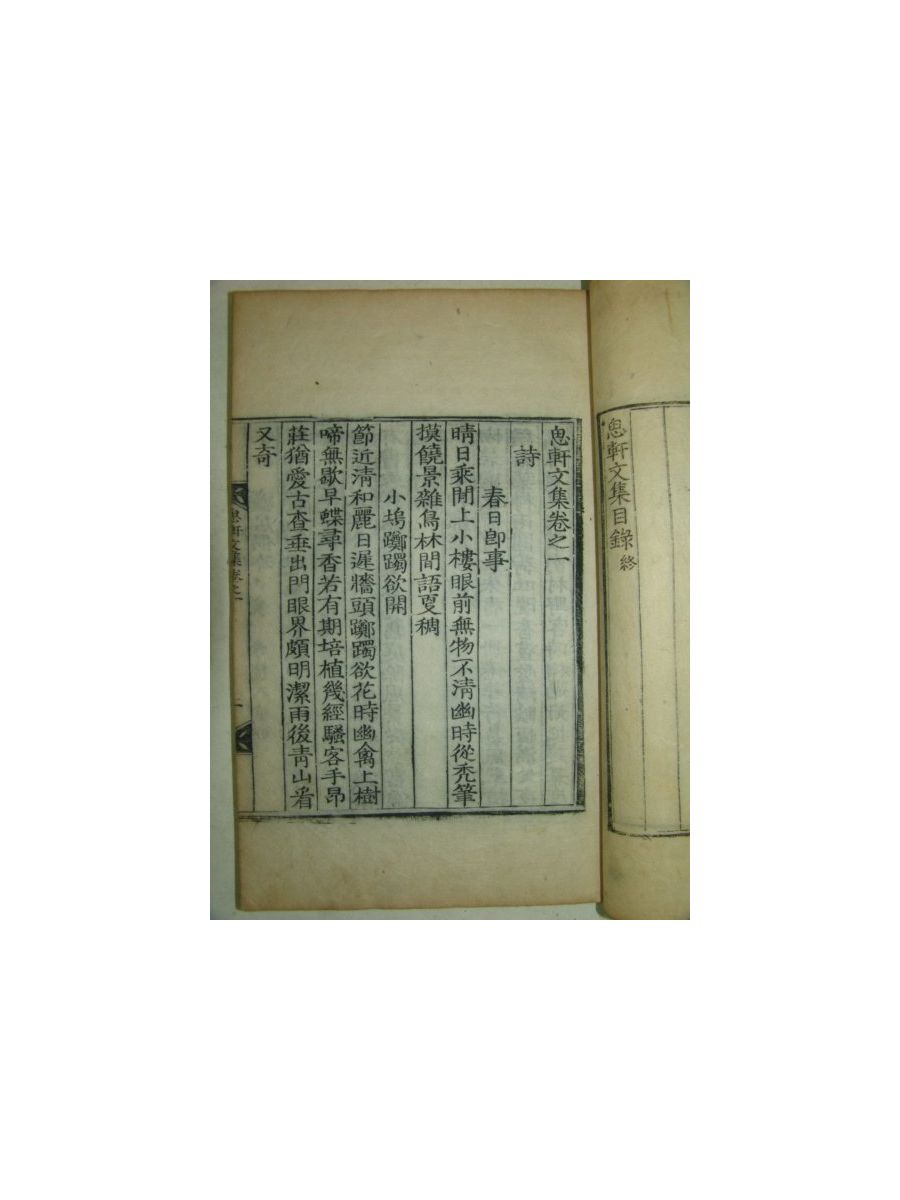 恖軒文集目錄 終
恖軒文集卷之一
詩
春日卽事
晴日乘閒上小樓眼前無物不淸幽時從禿筆
摸饒景雜鳥林間語夏稠
小塢躑躅欲開
節近淸和麗日遲牆頭躑躅欲花時幽禽上樹
啼無歇早蝶尋香若有期培植幾經騷客手昂
莊猶愛古查垂出門眼界頗明潔雨後靑山看
又奇
恖軒文集卷之一